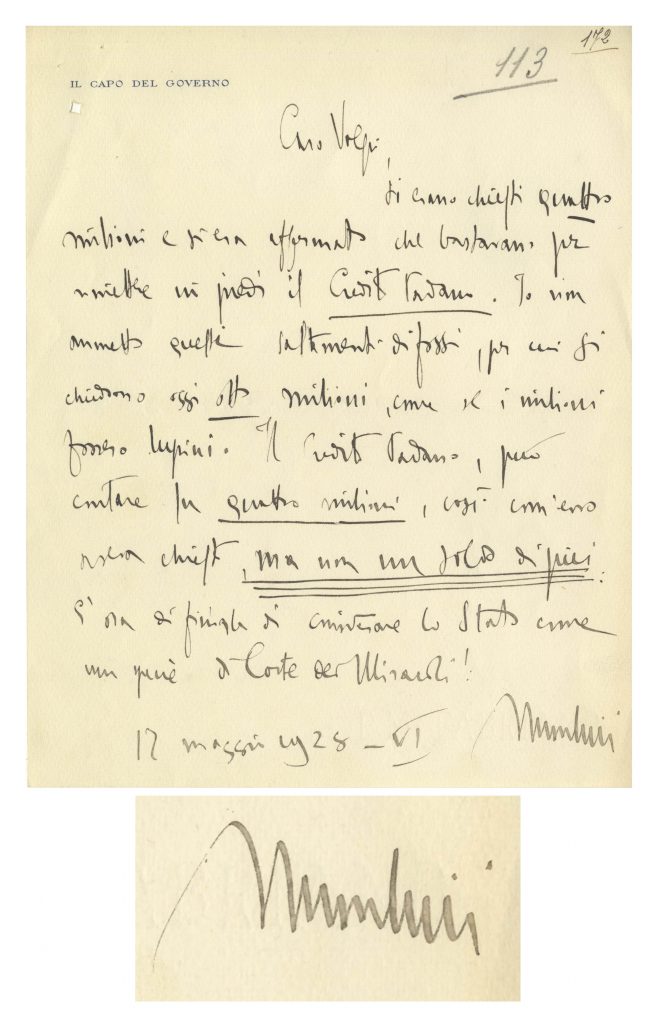 172
113
IL CAPO DEL GOVERNO
Caro Volpi,
si erano chiesti quattro
milioni e si era affermato che bastavano per
rimettere in piedi il Credito Padano. Io non
ammetto questi saltamenti di fossi, per cui si
chiedono oggi otto milioni, come se i milioni
fossero lupini. Il Credito Padano, può
contare su quattro milioni, così com'esso
aveva chiesto, ma non un soldo di più.
È ora di finirla di considerare lo Stato come
una specie di Corte dei Miracoli!
17 maggio 1928 - VI
Mussolini
Mussolini